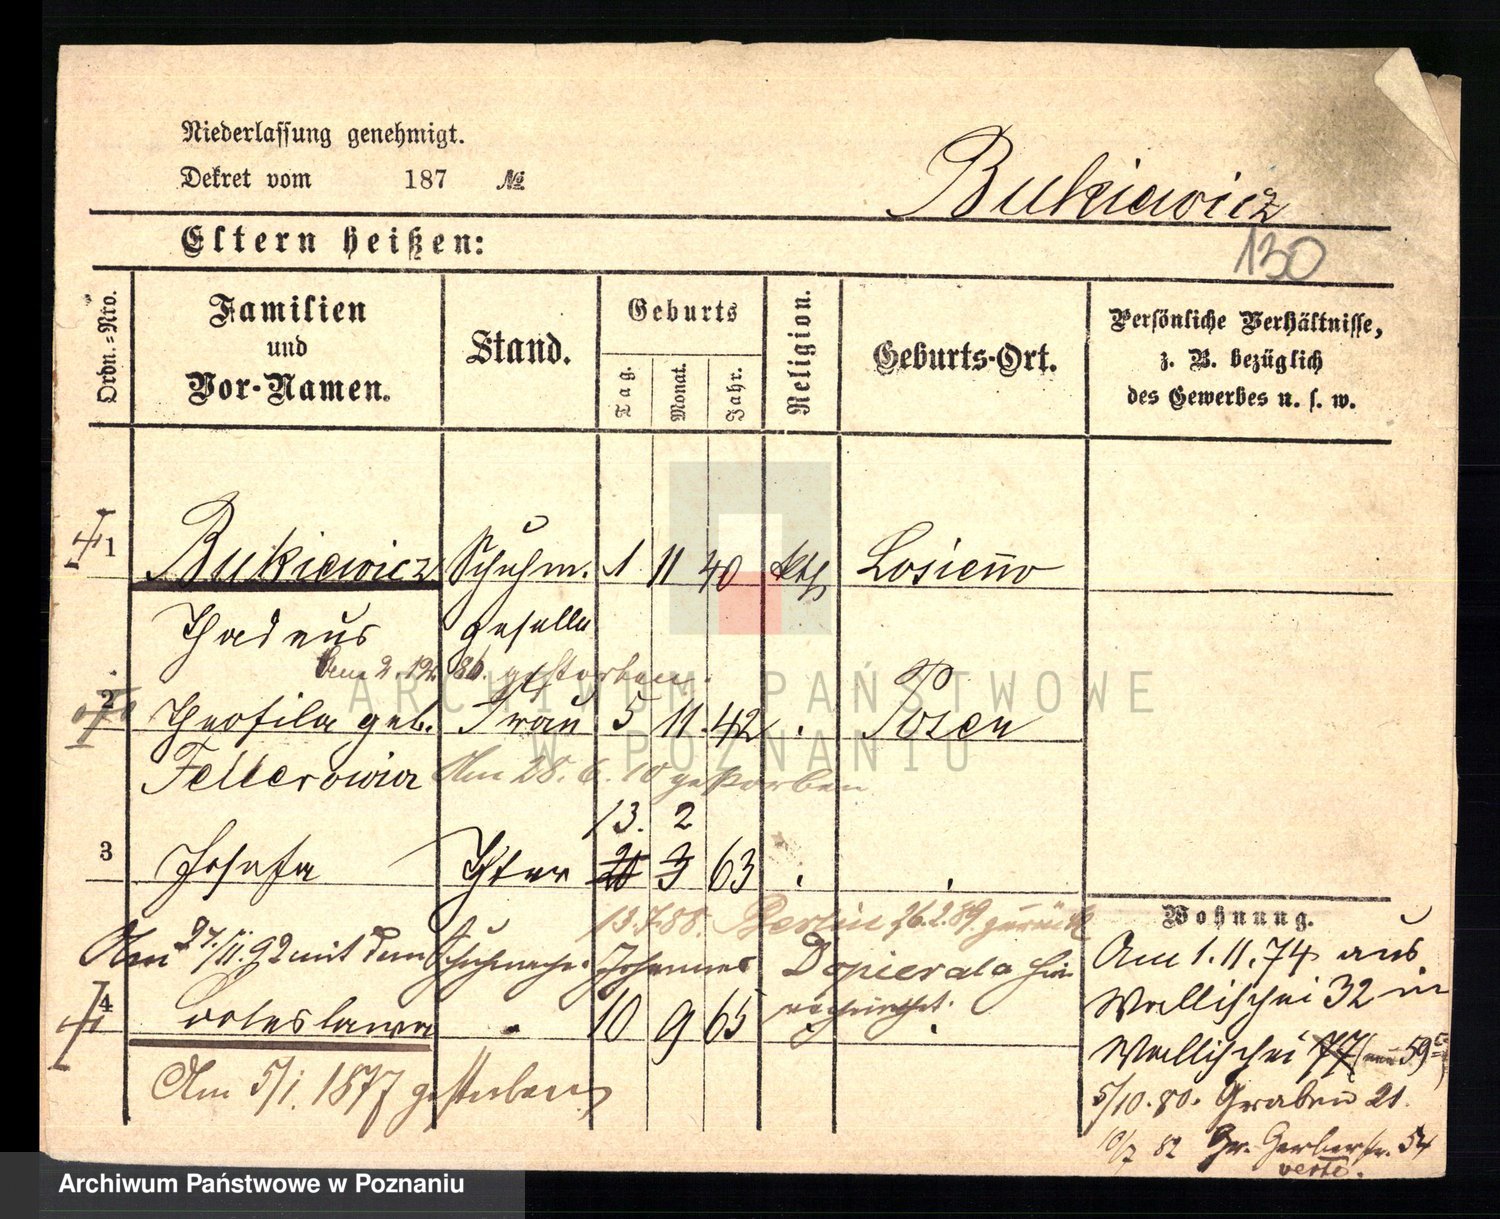 Niederlassung genehmigt.
Dekret vom 187 №
Bukiewicz
Eltern heißen:
130
Ordn.-Nro.
Familien
und
Vor-Namen.
Stand.
Geburts
Tag.
Monat.
Jahr.
Religion.
Geburts-Ort.
Persönliche Verhältnisse,
z. B. bezüglich
des Gewerbes u. s. w.
1 Bukiewicz Schuhm. 1 11 40 kth Losienno
Thadeus geselle
Am 2. 12. 86. gestorben.
2 Theofila geb. Frau 5 11. 42 Posen
Am 28. 6. 10 gestorben
13. 2
3 Josefa Thter 20 3 63
13.7.88. Berlin 26.2.89. zurück
Am 27./11. 92 mit dem Schuhmacher Johannes Dopierala
4 Boleslawa 10 9 65
Am 5/1. 1877 gestorben
Wohnung.
Am 1. 11. 74 aus
Wallischei 32 in
Wallischei 77 59
5/10. 80. Graben 21.
10/7 82 Gr. Gerberstr. 54
verte.
ARCHIWUM PAŃSTWOWE
W POZNANIU
Archiwum Państwowe w Poznaniu